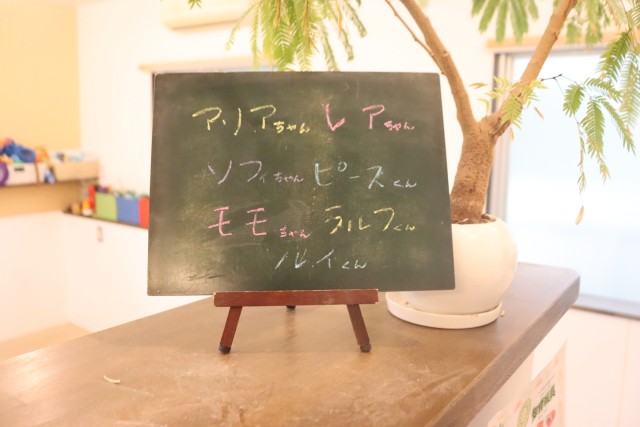 アリアちゃん レアちゃん
ソフィちゃん ピースくん
モモちゃん ラルフくん
ルイくん